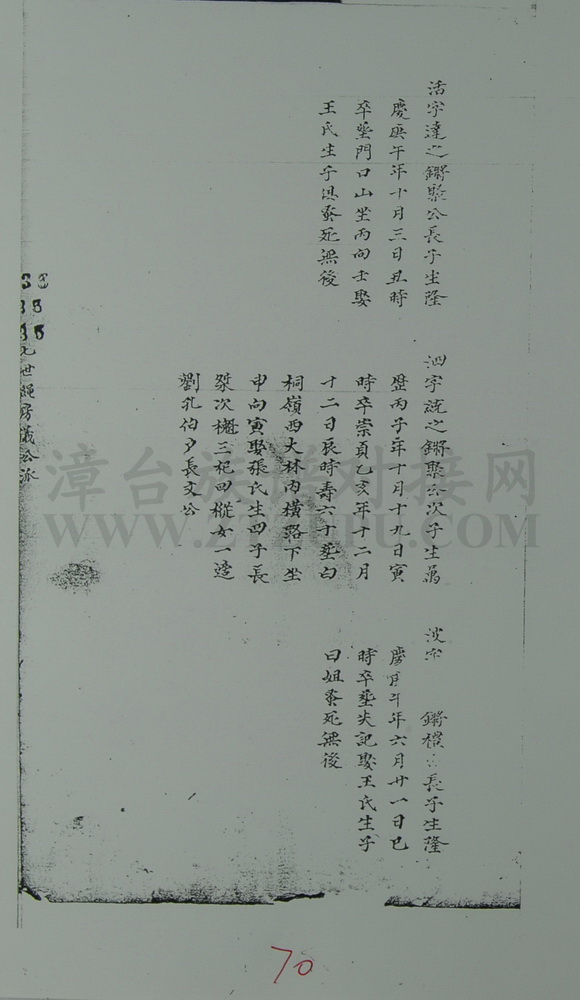 活字達之鏘聚公長子生隆
慶庚午年十月三日丑時
卒塟門口山坐丙向壬娶
王氏生子俱蚤死無後
泗字 之鏘聚公次子生萬
曆丙子年十月十九日寅
時卒崇貞乙亥年十二月
十二日辰時壽六十塟白
桐嶺西大林内橫路下坐
申向寅娶張氏生四子長
桀次 三祀四樅女一適
劉孔伯夕長文公
波字 鏘 公長子生隆
慶庚午年六月廿一日巳
時卒塟失記娶王氏生子
曰姐蚤死無後
七世 房議公派
漳台族谱对接网
WWW.ZTZUPU.COM
70